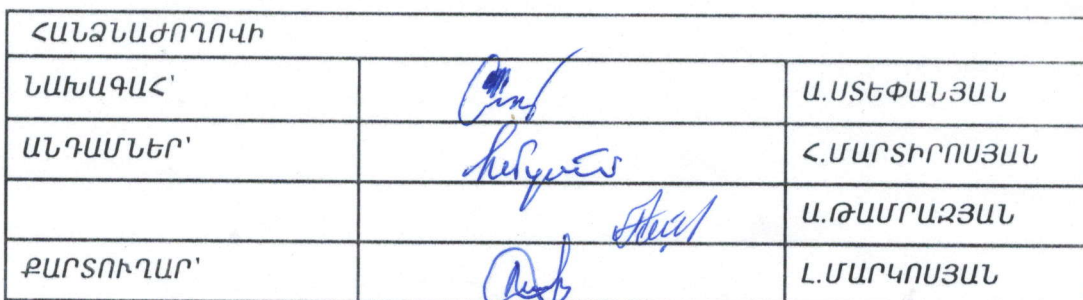 ՀԱՆՁՆԱԺՈՂՈՎԻ
ՆԱԽԱԳԱՀ՝ Ա.ՍՏԵՓԱՆՅԱՆ
ԱՆԴԱՄՆԵՐ՝ Հ.ՄԱՐՏԻՐՈՍՅԱՆ
Ա.ԹԱՄՐԱԶՅԱՆ
ՔԱՐՏՈՒՂԱՐ՝ Լ.ՄԱՐԿՈՍՅԱՆ